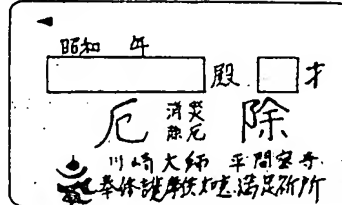 昭和 年
殿 才
厄 消災 除厄 除
川崎大師 平間寺
奉修護摩供如意満足祈所